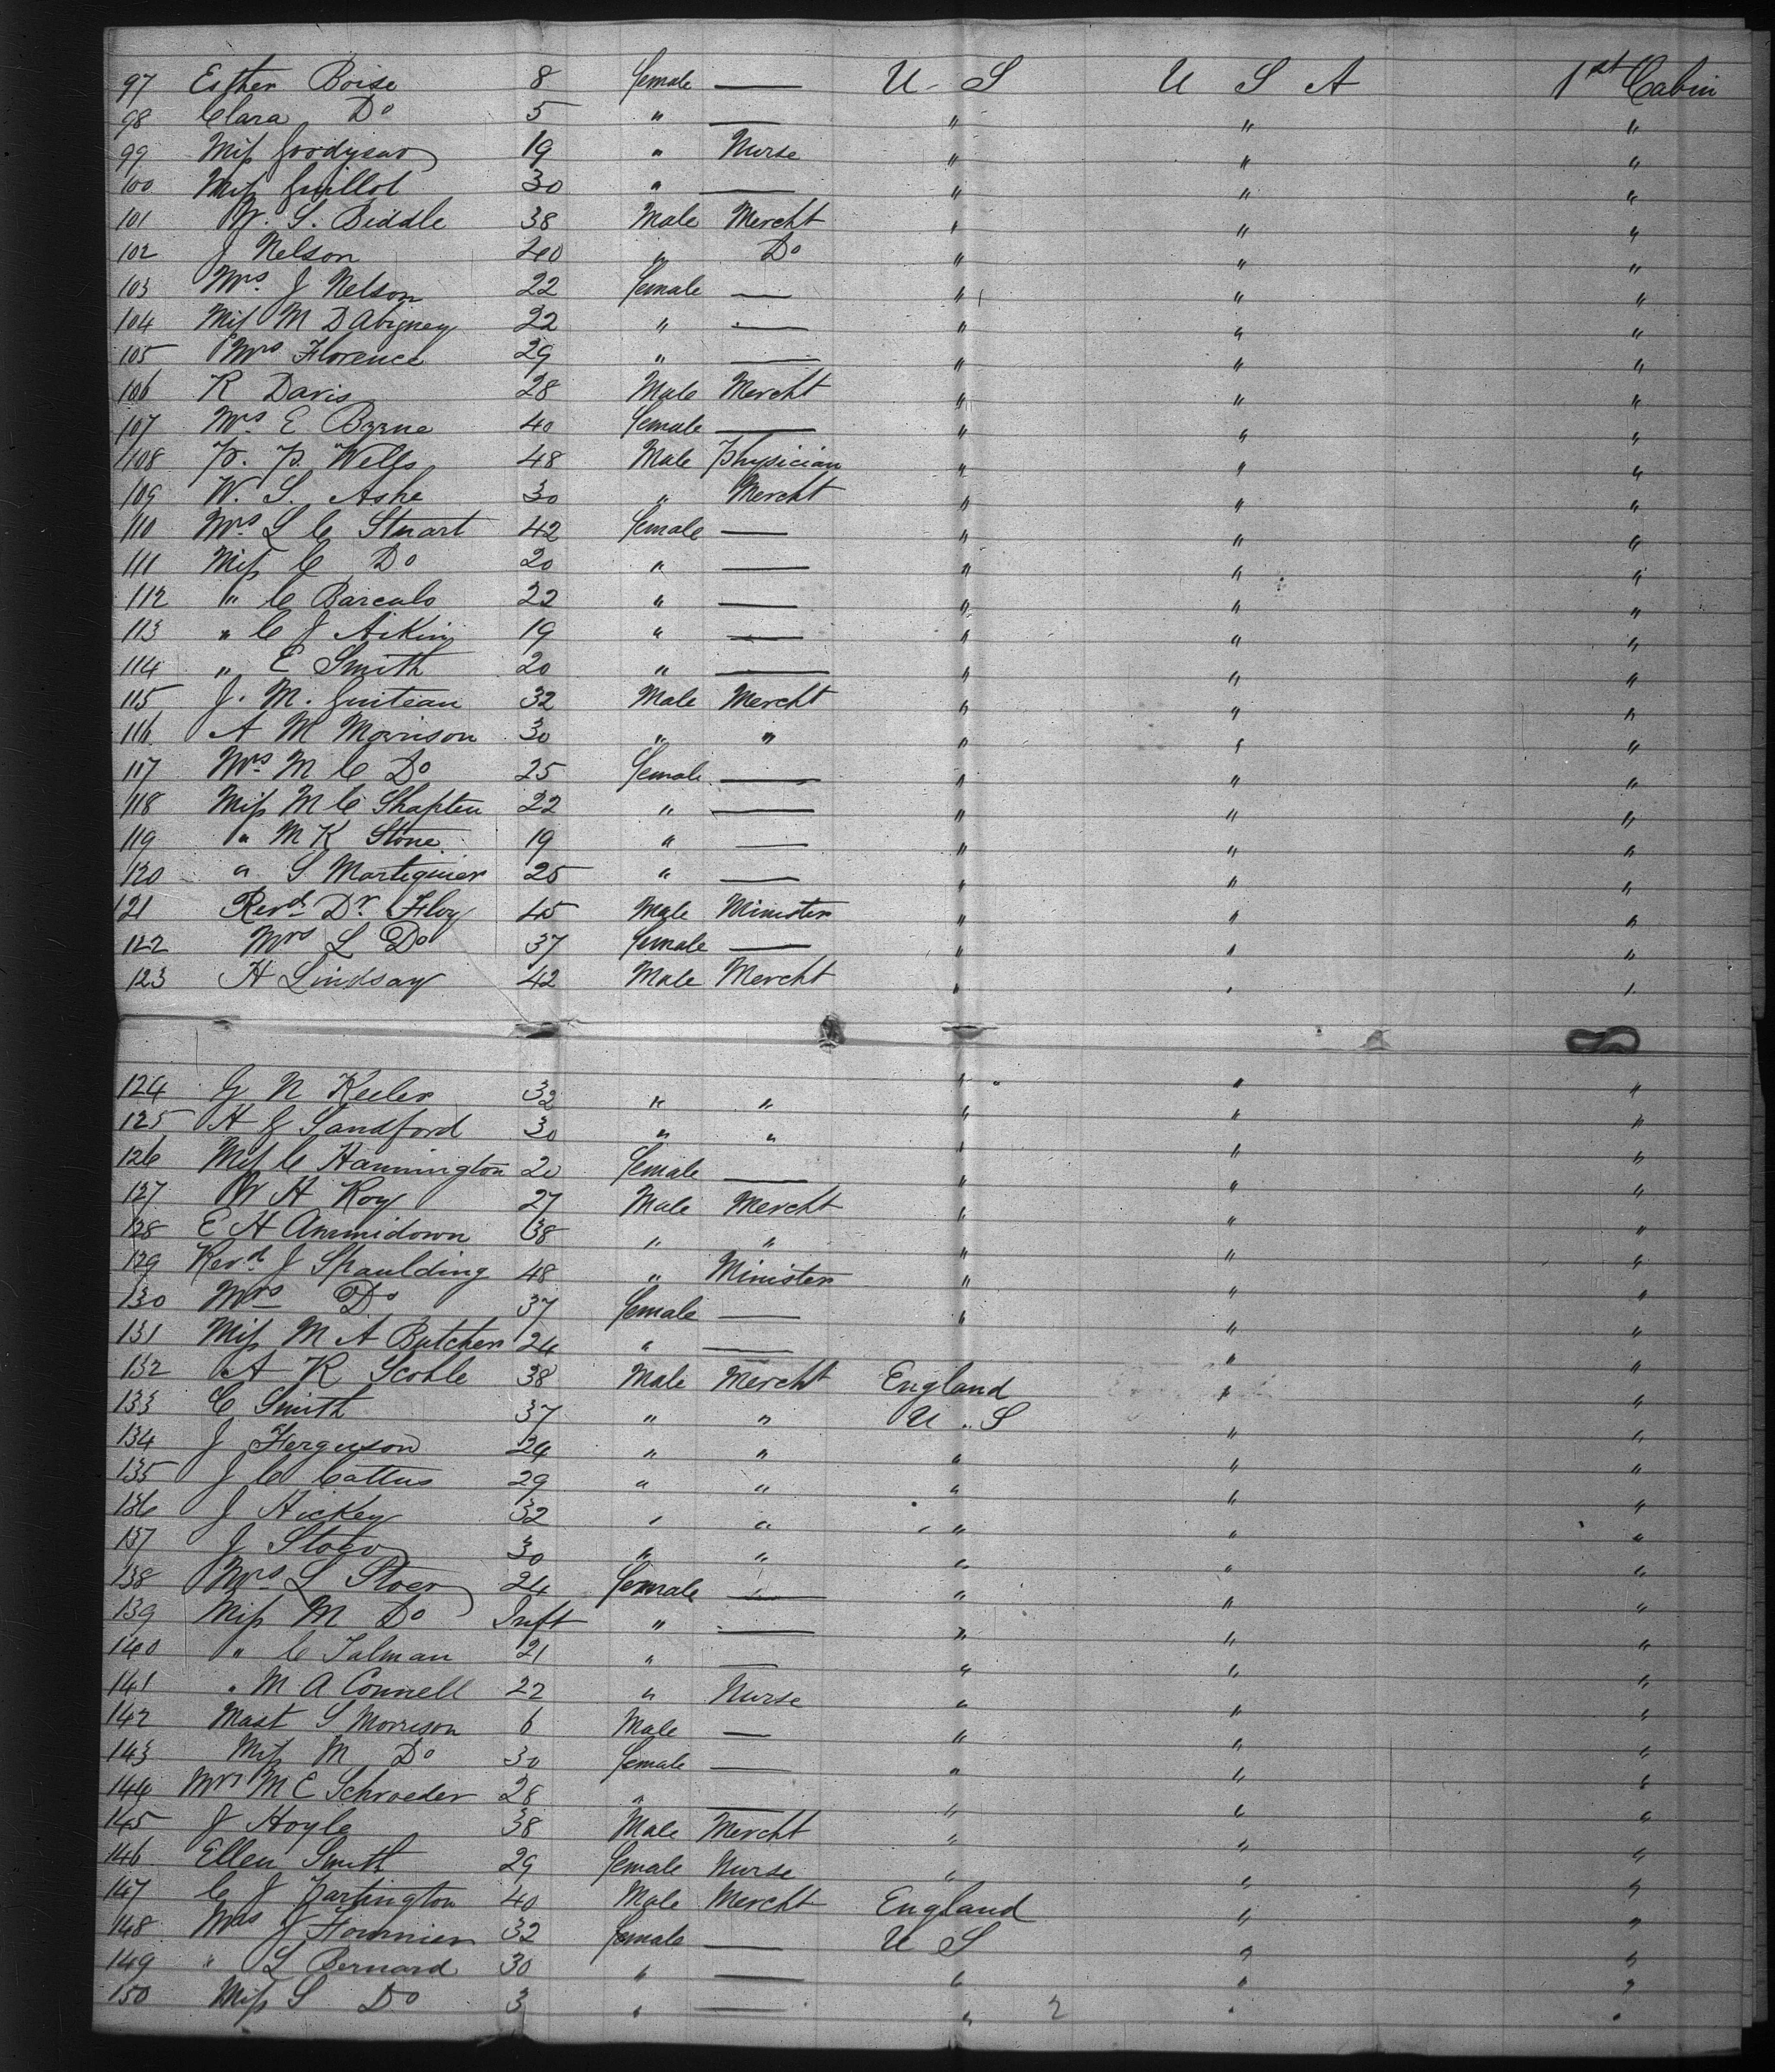 97 Esther Boise 8 female — U S U S A 1st Cabin
98 Clara Do 5 " — " " "
99 Miss 19 " Nurse " " "
100 Miss Guillot 30 " — " " "
101 W. S. Biddle 38 Male Mercht " " "
102 J Nelson 40 " Do " " "
103 Mrs J Nelson 22 female — " " "
104 Miss M DAbigney 22 " — " " "
105 Mrs Florence 29 " — " " "
106 R Davis 28 Male Mercht " " "
107 Mrs E Byrne 40 female — " " "
108 P. P. Wells 48 Male Physician " " "
109 W. S. Ashe 30 " Mercht " " "
110 Mrs L C Stuart 42 female — " " "
111 Miss C Do 20 " — " " "
112 " C Barculo 22 " — " " "
113 " C J Aikin 19 " — " " "
114 " E Smith 20 " — " " "
115 J. M. Guiteau 32 Male Mercht " " "
116 A M Morrison 30 " " " " "
117 Mrs M C Do 25 female — " " "
118 Miss M C Shapten 22 " — " " "
119 " M K Stone 19 " — " " "
120 " S Martiguier 25 " — " " "
121 Revd Dr. Floy 45 Male Minister " " "
122 Mrs L Do 37 female — " " "
123 H Lindsay 42 Male Mercht " " "
124 G N Keeler 32 " " " " "
125 H G Sandford 30 " " " " "
126 Miss C Hannington 20 female — " " "
127 W H Roy 27 Male Mercht " " "
128 E H Ammidown 38 " " " " "
129 Revd J Spaulding 48 " Minister " " "
130 Mrs Do 37 female — " " "
131 Miss M A Butcher 24 " — " "
132 A R Scoble 38 Male Mercht England " "
133 C Smith 37 " " U. S " "
134 J Ferguson 24 " " " " "
135 J C Cattus 29 " " " " "
136 J Hickey 32 " " " " "
137 J Stoer 30 " " " " "
138 Mrs L Stoer 24 female — " " "
139 Miss M Do Inft " — " " "
140 " C Talman 21 " — " " "
141 " M A Connell 22 " Nurse " " "
142 Mast S Morrison 6 Male — " " "
143 Miss M Do 30 female — " " "
144 Mrs M E Schroeder 28 " — " " "
145 J Hoyle 38 Male Mercht " " "
146 Ellen Smith 29 female Nurse " " "
147 C J Partington 40 Male Mercht England " "
148 Mrs J Fournier 32 female — U S " "
149 " L Bernard 30 " — " " "
150 Miss S Do 3 " — " 2 " "